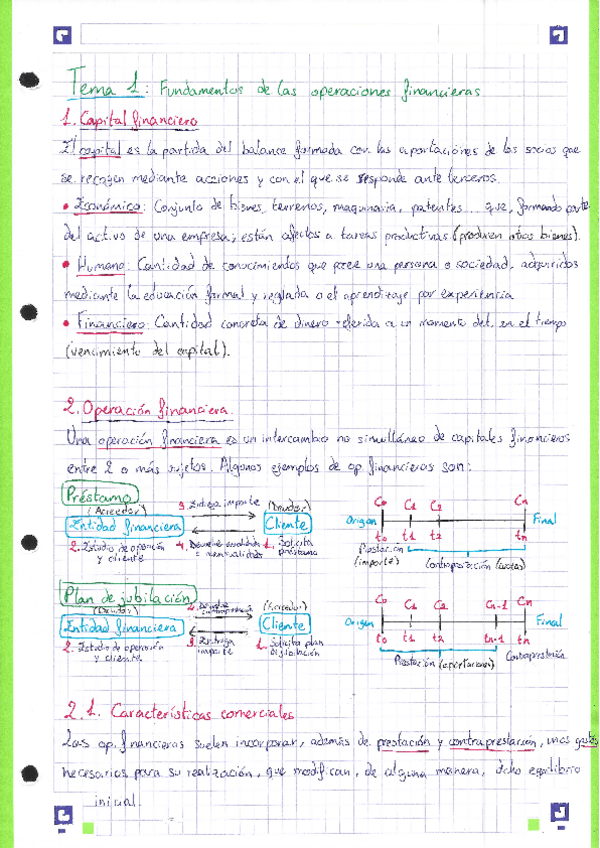 Tema 1: Fundamentos de las operaciones financieras
1. Capital financiero
El capital es la partida del balance formada con las aportaciones de los socios que
se recogen mediante acciones y con el que se responde ante terceros.
• Económico: Conjunto de bienes, terrenos, maquinaria, patentes... que, formando parte
del activo de una empresa, están afectos a tareas productivas (producen otros bienes).
• Humano: Cantidad de conocimientos que posee una persona o sociedad, adquiridos
mediante la educación formal y reglada o el aprendizaje por experiencia
• Financiero: Cantidad concreta de dinero referida a un momento det. en el tiempo
(vencimiento del capital).
2. Operación financiera.
Una operación financiera es un intercambio no simultáneo de capitales financieros
entre 2 o más sujetos. Algunos ejemplos de op. financieras son:
Préstamo
(Acreedor) 3. Entrega importe (Deudor)
Entidad financiera Cliente
2. Estudio de operación y cliente
4. Devuelve mensualidades
1. Solicita préstamo
C0 C1 C2 Cn
Origen Final
t0 t1 t2 tn
Prestación (importe) Contraprestación (cuotas)
Plan de jubilación
(Deudor) (Acreedor)
Entidad financiera Cliente
2. Estudio de operación y cliente
3. Entrega importe
1. Solicita plan de jubilación
C0 C1 C2 Cn-1 Cn
Origen Final
t0 t1 t2 tn-1 tn
Prestación (aportaciones) Contraprestación
2.1. Características comerciales
Las op. financieras suelen incorporar, además de prestación y contraprestación, unos gastos
necesarios para su realización, que modifican, de alguna manera, dicho equilibrio
inicial.